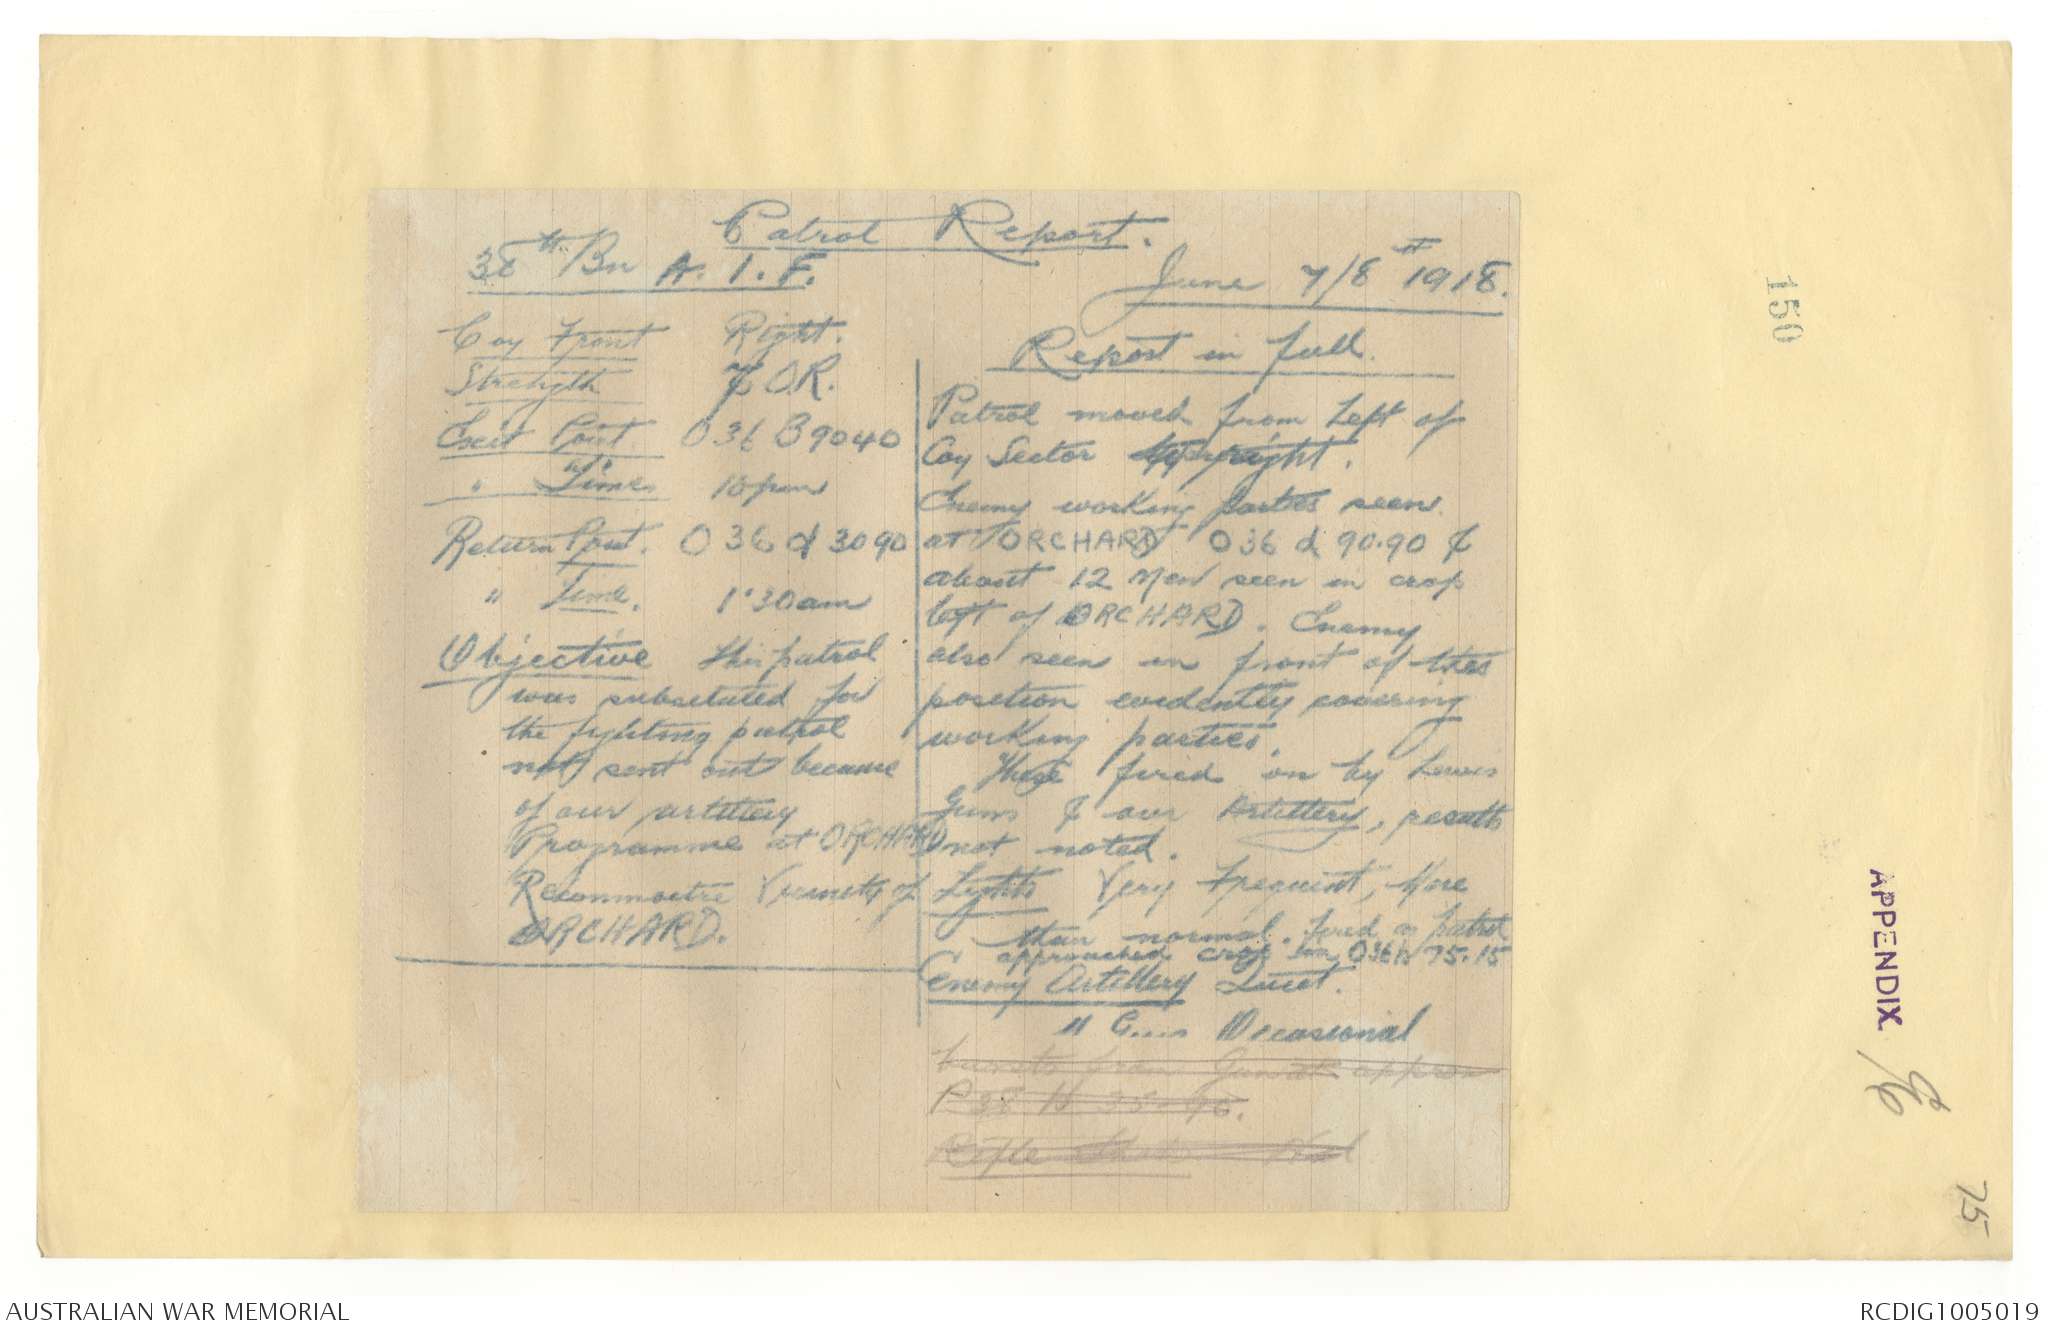 Patrol Report.
38th Bn A.I.F.
June 7/8th 1918.
Coy Front Right.
Strength OR.
Exit Point O 36 B 9040
" Time 10 pm
Return Point. O 36 d 3090
" Time. 1.30 am
Objective this patrol
was substituted for
the fighting patrol
not sent out because
of our artillery
Programme at ORCHARD
Reconnoitre Vicinity of
ORCHARD.
Report in full.
Patrol moved from Left of
Coy Sector right.
Enemy working parties seen
at ORCHARD O 36 d 90.90 &
about 12 Men seen in crop
left of ORCHARD. Enemy
also seen in front of this
position evidently covering
working parties.
These fired on by Lewis
Guns & our Artillery, results
not noted.
Lights Very Frequent, More
than normal. Fired as Patrol
approached crop in O36b 75.15
Enemy Artillery Quiet.
" G....s Occasional
bursts from Gun at approx
P 35.96.
Rifle
150
APPENDIX
75
AUSTRALIAN WAR MEMORIAL
RCDIG1005019